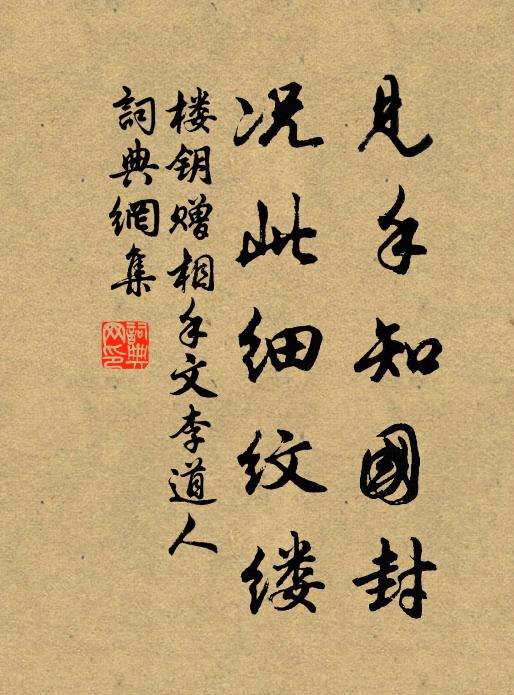 见手知國封
况此细纹缕
楼钥赠相手文李道人
詞典網集
詞典網印